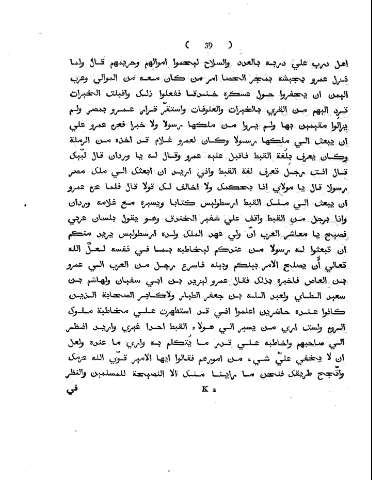 ( 39 )
اهل درب علي دربه بالعدد والسلاح ليحموا اموالهم وحريمهم قال ولما
نزل عمرو بجيشه بمجر الحصا امر من كان معه من الموالي وعرب
اليمن ان يحفروا حول عسكره خندقا ففعلوا ذلك واقبلت الخيرات
ترد اليهم من القري بالخيرات والعلوفات واستقر قرار عمرو بمصر ولم
يزالوا مقيمين بها ولم يروا من ملكها رسولا ولا خبرا فعزم عمرو علي
ان يبعث الي ملكها رسولا وكان لعمرو غلام قد اخذه من الرملة
وكان يعرف بلغة القبط فاقبل عليه عمرو وقال له يا وردان قال لبيك
قال انت رجل تعرف لغة القبط واني اريد ان ابعثك الي ملك مصر
رسولا قال يا مولاي انا بحكمك ولا اخالف لك قولا قال فلما عزم عمرو
ان يبعث الي ملك القبط ارسطوليس كتابا ويسيره مع غلامه وردان
واذا برجل من القبط واقف علي شفير الخندق وهو يقول بلسان عربي
فصيح يا معاشر العرب ان ولي عهد الملك ولده ارسطوليس يريد منكم
ان تبعثوا له رسولا من عندكم ليخاطبه بما في نفسه لعل الله
تعالي أن يصلح الامر بينكم وبينه فاسرع رجل من العرب الي عمرو
بن العاص فاخبره بذلك فقال عمرو ليزيد بن ابي سفيان ولهاشم بن
سعيد الطايي ولعبد الله بن جعفر الطيار ولاكابر الصحابة الذين
كانوا عنده حاضرين اعلموا اني قد استظهرت علي مخاطبة ملوك
الروم ولست اري من يسير الي هولاء القبط احدا غيري واريد انظر
الي صاحبهم واخاطبه علي قدر ما يتكلم به واري ما عنده ولعل
ان لا يخفي عليّ شيء من امورهم فقالوا ايها الامير قوّي الله عزمك
وانجح طريقك فنحن ما راينا منك الا النصيحة للمسلمين والنظر
K 2
في